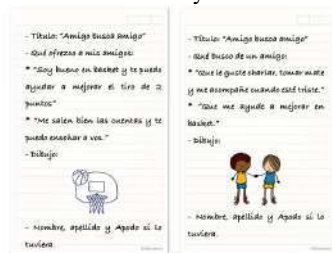 - Título: "Amigo busca amigo"
- Qué ofrezco a mis amigos:
* "Soy bueno en basket y te puedo
ayudar a mejorar el tiro de 2
puntos"
* "Me salen bien las cuentas y te
puedo enseñar a vos."
- Dibujo:
- Nombre, apellido y Apodo si lo
tuviera
- Título: "Amigo busca amigo"
- Qué busco de un amigo:
* "Que le guste charlar, tomar mate
y me acompañe cuando esté triste."
* "Que me ayude a mejorar en
basket."
- Dibujo:
- Nombre, apellido y Apodo si lo
tuviera.